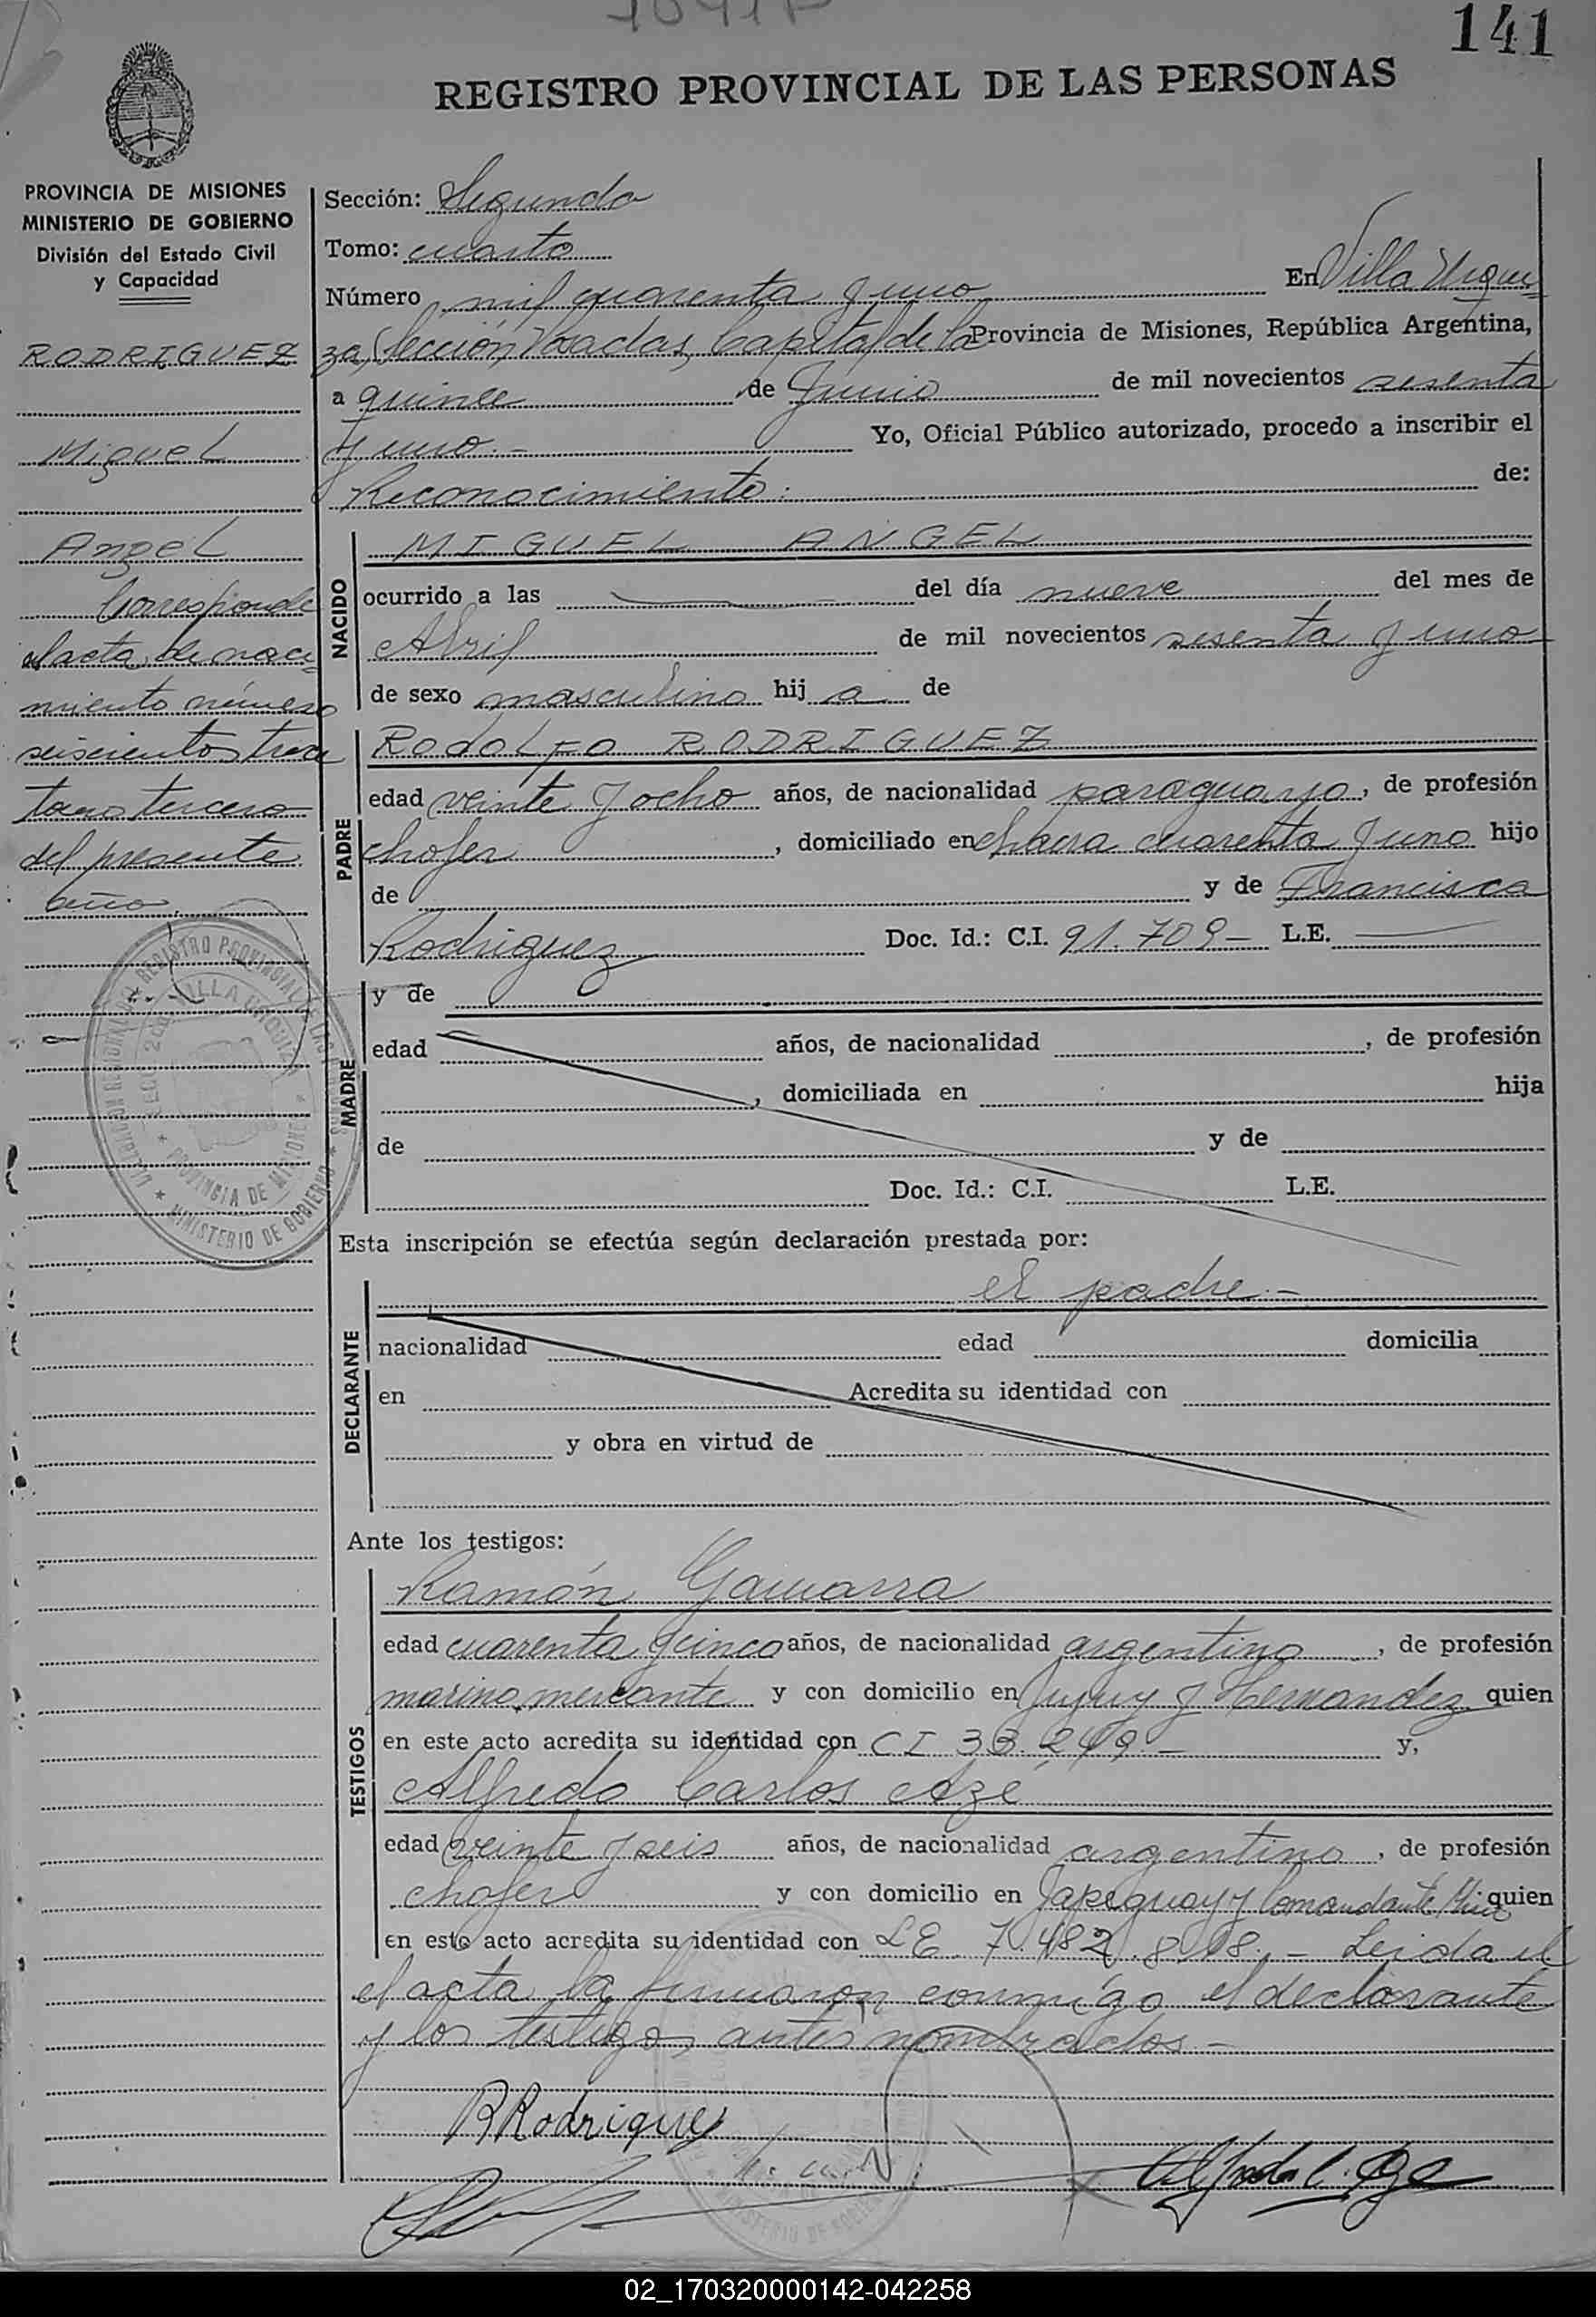 141
REGISTRO PROVINCIAL DE LAS PERSONAS
PROVINCIA DE MISIONES
MINISTERIO DE GOBIERNO
División del Estado Civil
y Capacidad
RODRIGUEZ
Miguel
Angel
Corresponde
al acta de naci-
miento número
seiscientos trece
tomo tercero
del presente
año.
Sección: Segunda
Tomo: cuarto
Número mil cuarenta y uno En Villa Urqui-
za, Sección, Posadas, Capital de la Provincia de Misiones, República Argentina,
a quince de Junio de mil novecientos sesenta
y uno.- Yo, Oficial Público autorizado, procedo a inscribir el
Reconocimiento: de:
NACIDO
MIGUEL ANGEL
ocurrido a las del día nueve del mes de
Abril de mil novecientos sesenta y uno
de sexo masculino hij a de
PADRE
RODOLFO RODRIGUEZ
edad veinte y ocho años, de nacionalidad paraguayo, de profesión
chofer, domiciliado en chacra cuarenta y uno hijo
de y de Francisca
Rodriguez Doc. Id.: C.I. 91.709- L.E.
MADRE
y de
edad años, de nacionalidad , de profesión
, domiciliada en hija
de y de
Doc. Id.: C.I. L.E.
Esta inscripción se efectúa según declaración prestada por:
DECLARANTE
el padre.-
nacionalidad edad domicilia
en Acredita su identidad con
y obra en virtud de
Ante los testigos:
TESTIGOS
Ramón Gamarra
edad cuarenta y cinco años, de nacionalidad argentino, de profesión
marino mercante y con domicilio en Jujuy y Hernandez quien
en este acto acredita su identidad con CI 33.249.- y,
Alfredo Carlos Azé
edad veinte y seis años, de nacionalidad argentino, de profesión
chofer y con domicilio en Yapeguay y Comandante quien
en este acto acredita su identidad con LE 7.482.8 8.- Leida el
el acta la firmaron conmigo el declarante
y los testigos antes nombrados.-
RRodriguez
REGISTRO PROVINCIAL DE LAS PERSONAS
MINISTERIO DE GOBIERNO
PROVINCIA DE MISIONES
02_170320000142-042258